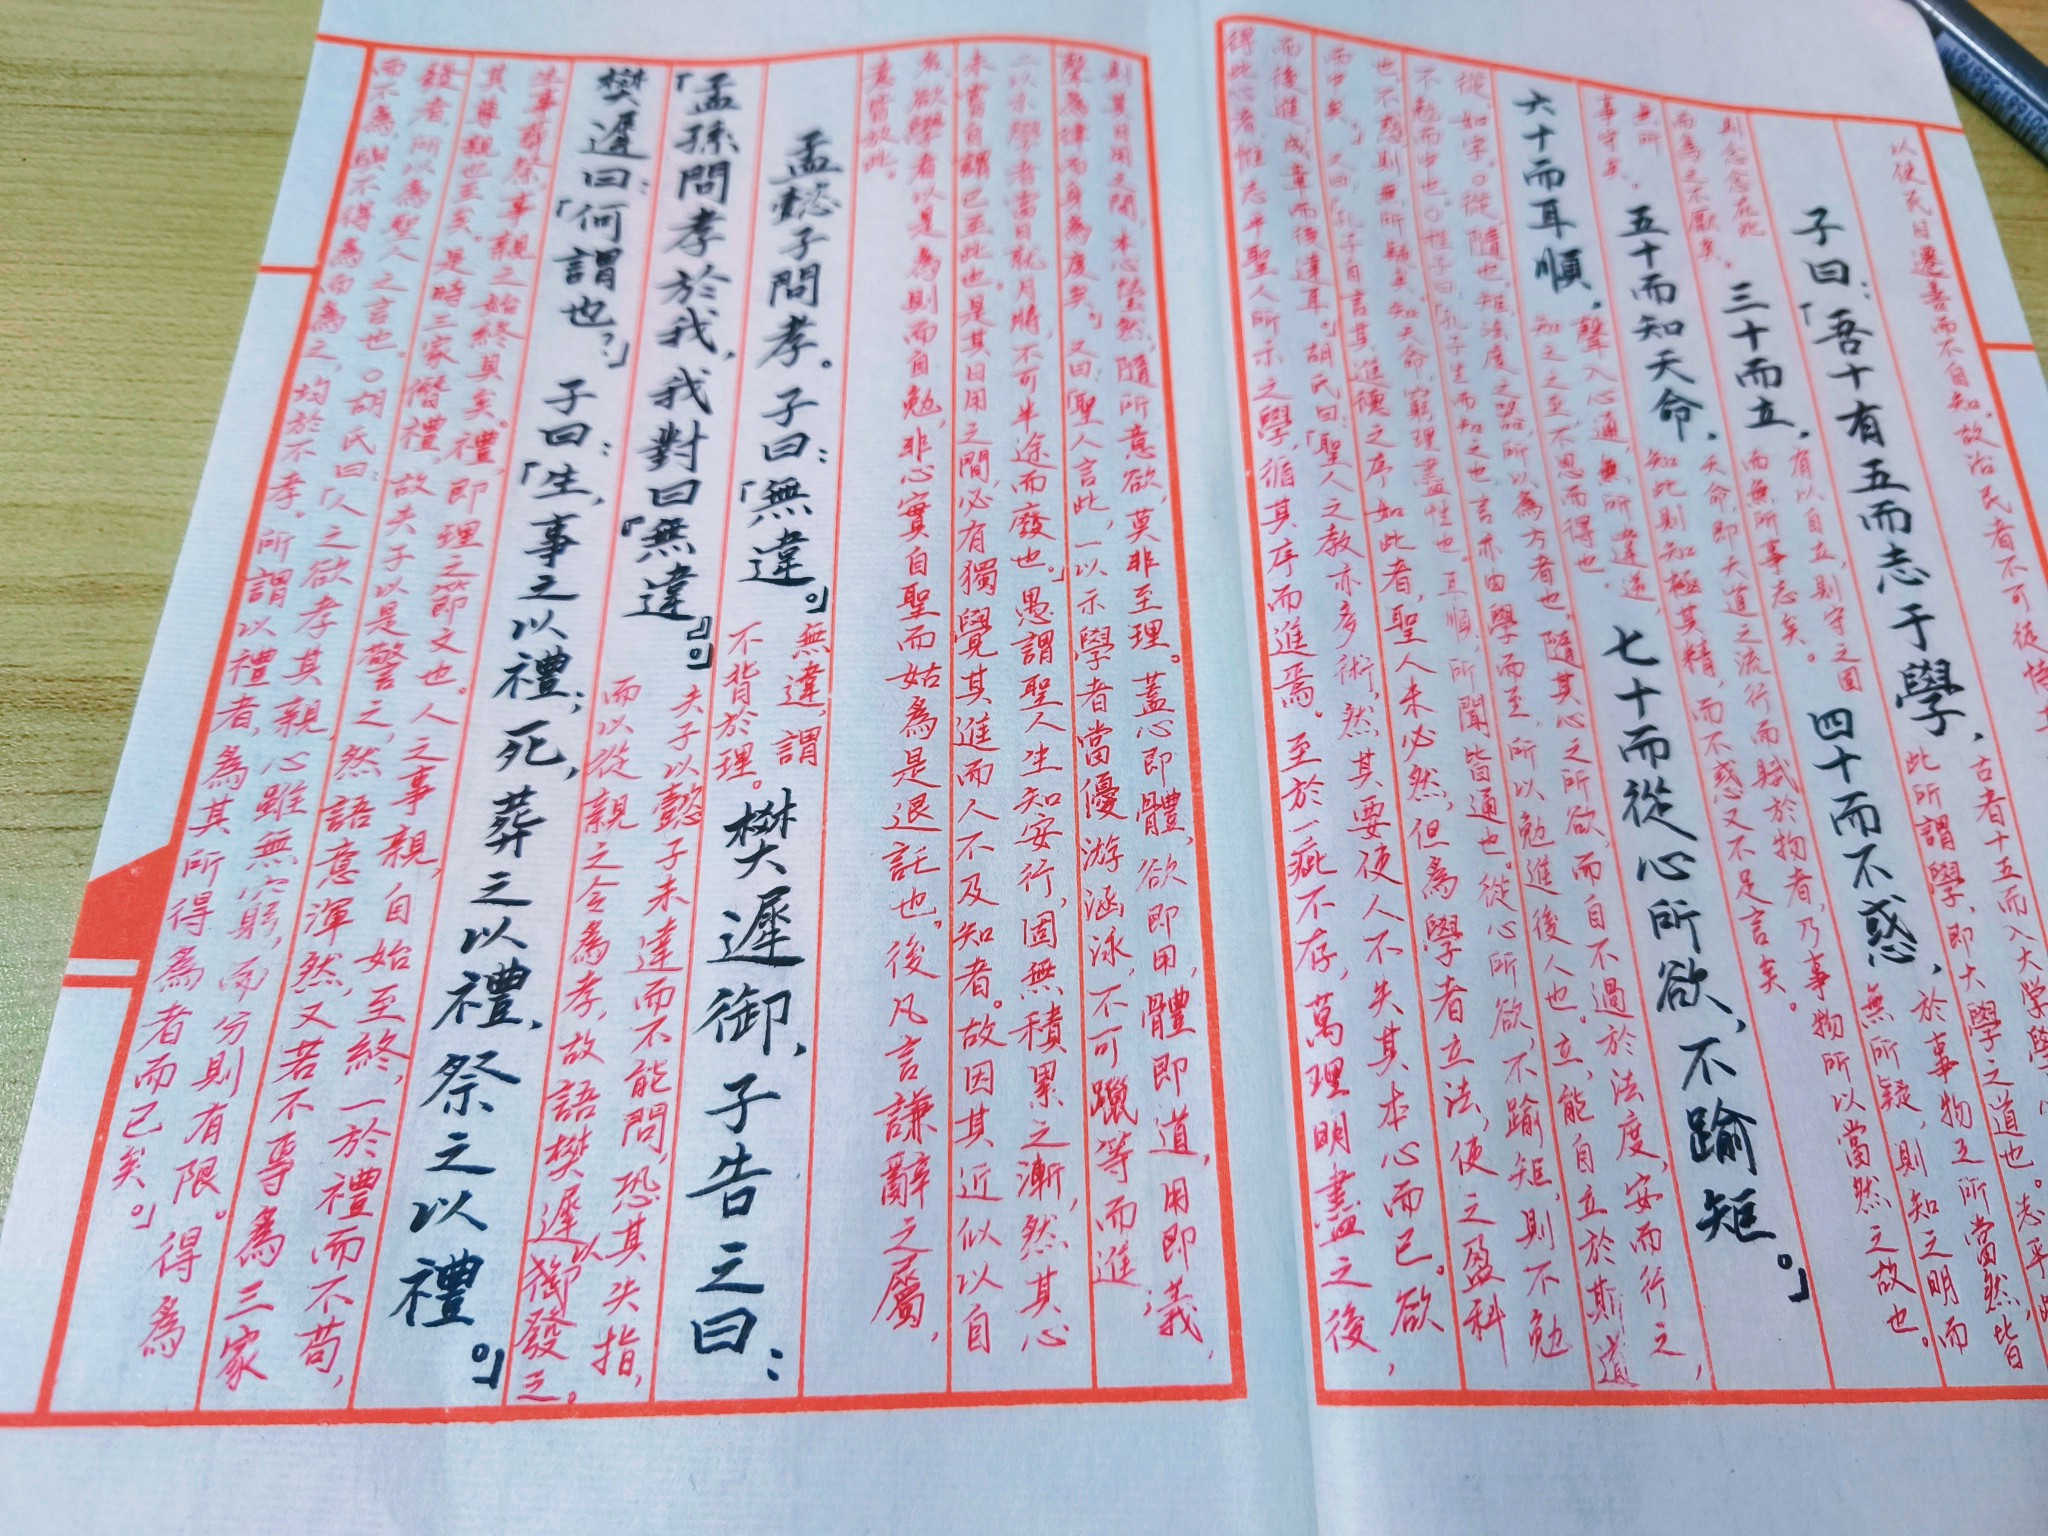 以使民日遷善而不自知。故治民者不可徒恃
子曰：「吾十有五而志于學，
古者十五而入大學
此所謂學，即大學之道也。志乎此，
則念念在此
而為之不厭矣。
三十而立，
有以自立，則守之固
而無所事志矣。
四十而不惑，
於事物之所當然皆
無所疑，則知之明而
無所
事守矣。
五十而知天命，
天命，即天道之流行而賦於物者，乃事物所以當然之故也。
知此則知極其精，而不惑又不足言矣。
六十而耳順，
聲入心通，無所違逆，
知之之至，不思而得也。
七十而從心所欲，不踰矩。」
從，如字。○從，隨也。矩，法度之器，所以為方者也。隨其心之所欲，而自不過於法度，安而行之，
不勉而中也。○程子曰：「孔子生而知之也，言亦由學而至，所以勉進後人也。立，能自立於斯道
也，不惑，則無所疑矣。知天命，窮理盡性也。耳順，所聞皆通也。從心所欲，不踰矩，則不勉
而中矣。」又曰：「孔子自言其進德之序如此者，聖人未必然，但為學者立法，使之盈科
而後進，成章而後達耳。」胡氏曰：「聖人之教亦多術，然其要使人不失其本心而已。欲
得此心者，惟志乎聖人所示之學，循其序而進焉。至於一疵不存，萬理明盡之後，
則其日用之間，本心瑩然，隨所意欲，莫非至理。蓋心即體，欲即用，體即道，用即義，
聲為律而身為度矣。」又曰：「聖人言此，一以示學者當優游涵泳，不可躐等而進；
二以示學者當日就月將，不可半途而廢也。」愚謂聖人生知安行，固無積累之漸，然其心
未嘗自謂已至此也。是其日用之間，必有獨覺其進而人不及知者。故因其近似以自
名，欲學者以是為則而自勉，非心實自聖而姑為是退託也。後凡言謙辭之屬，
意皆放此。
孟懿子問孝。子曰：「無違。」
無違，謂
不背於理。
樊遲御，子告之曰：
「孟孫問孝於我，我對曰『無違』。」
夫子以懿子未達而不能問，恐其失指，
而以從親之令為孝，故語樊遲以御發之。
樊遲曰：「何謂也？」子曰：「生，事之以禮；死，葬之以禮，祭之以禮。」
生事葬祭，事親之始終具矣。禮，即理之節文也。人之事親，自始至終，一於禮而不苟，
其尊親也至矣。是時三家僭禮，故夫子以是警之，然語意渾然，又若不專為三家
發者，所以為聖人之言也。○胡氏曰：「人之欲孝其親，心雖無窮，而分則有限。得為
而不為，與不得為而為之，均於不孝。所謂以禮者，為其所得為者而已矣。」